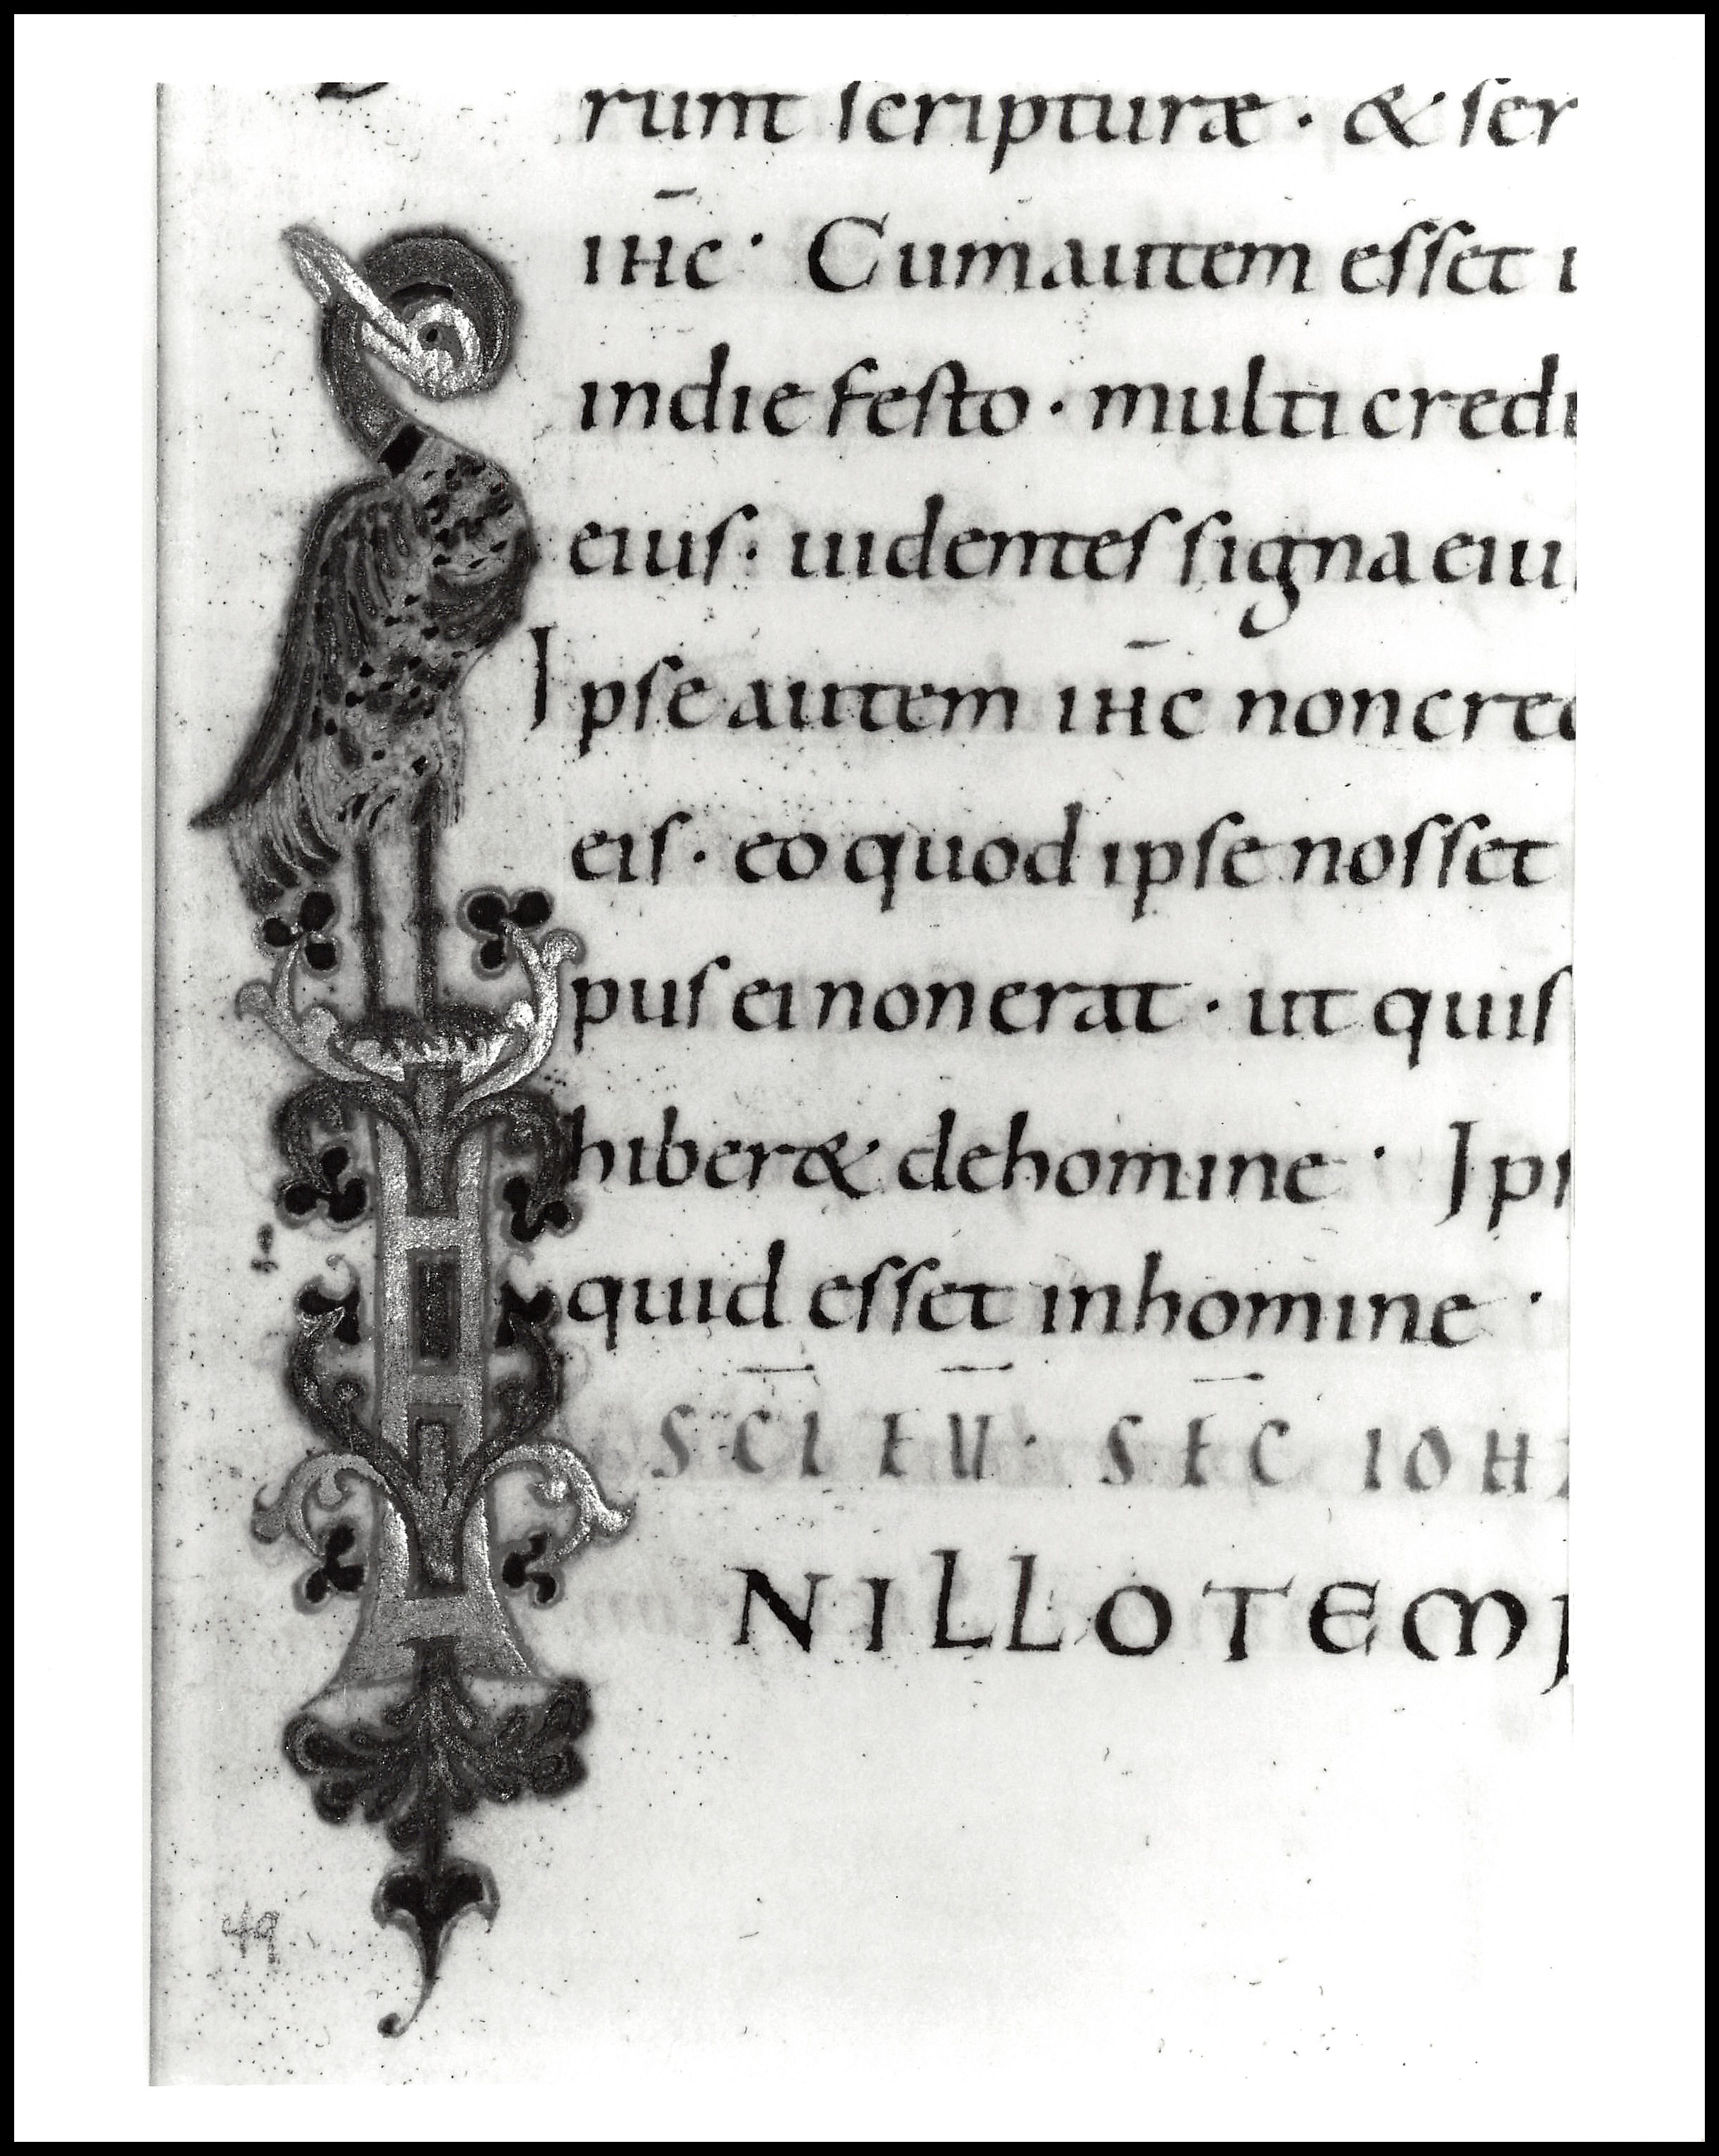 runt scripturæ · & ser
ihc· Cum autem esset i
in die festo · multi credi
eius · uidentes signa eiu
Ipse autem ihc non cred
eis · eo quod ipse nosset
pus ei non erat · ut quis
hiber& de homine · Ip
quid esset in homine ·
SCI EU · SEC IOH
NILLO TEMP
49